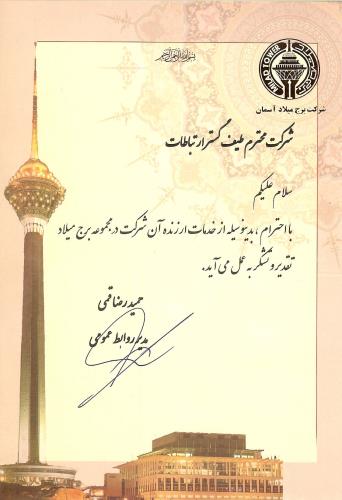 بسم الله الرحمن الرحیم
MILAD TOWER
شرکت برج میلاد آسمان
شرکت محترم طیف گستر ارتباطات
سلام علیکم
با احترام، بدینوسیله از خدمات ارزنده آن شرکت در مجموعه برج میلاد
تقدیر و تشکر به عمل می آید.
حمید رضا قمی
مدیر روابط عمومی